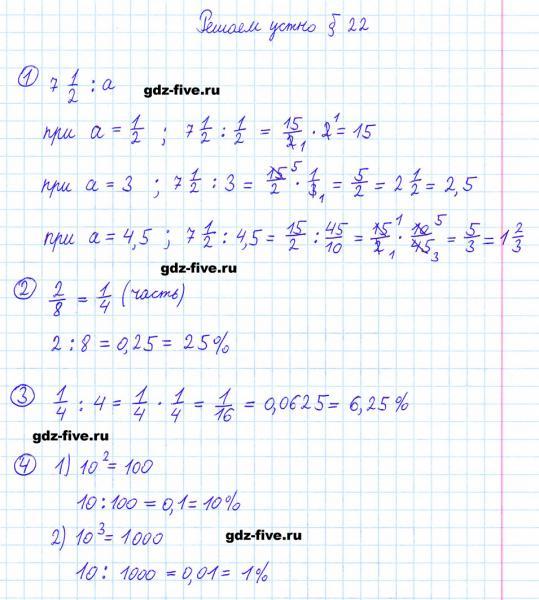 Решаем устно § 22
① 7 1/2 : a
gdz-five.ru
при a = 1/2 ; 7 1/2 : 1/2 = 15/2₁ · 2¹ = 15
при a = 3 ; 7 1/2 : 3 = 15⁵/2 · 1/3₁ = 5/2 = 2 1/2 = 2,5
при a = 4,5 ; 7 1/2 : 4,5 = 15/2 : 45/10 = 15¹/2₁ · 10⁵/45₃ = 5/3 = 1 2/3
gdz-five.ru
② 2/8 = 1/4 (часть)
2 : 8 = 0,25 = 25%
③ 1/4 : 4 = 1/4 · 1/4 = 1/16 = 0,0625 = 6,25%
gdz-five.ru
④ 1) 10² = 100
10 : 100 = 0,1 = 10%
2) 10³ = 1000
gdz-five.ru
10 : 1000 = 0,01 = 1%